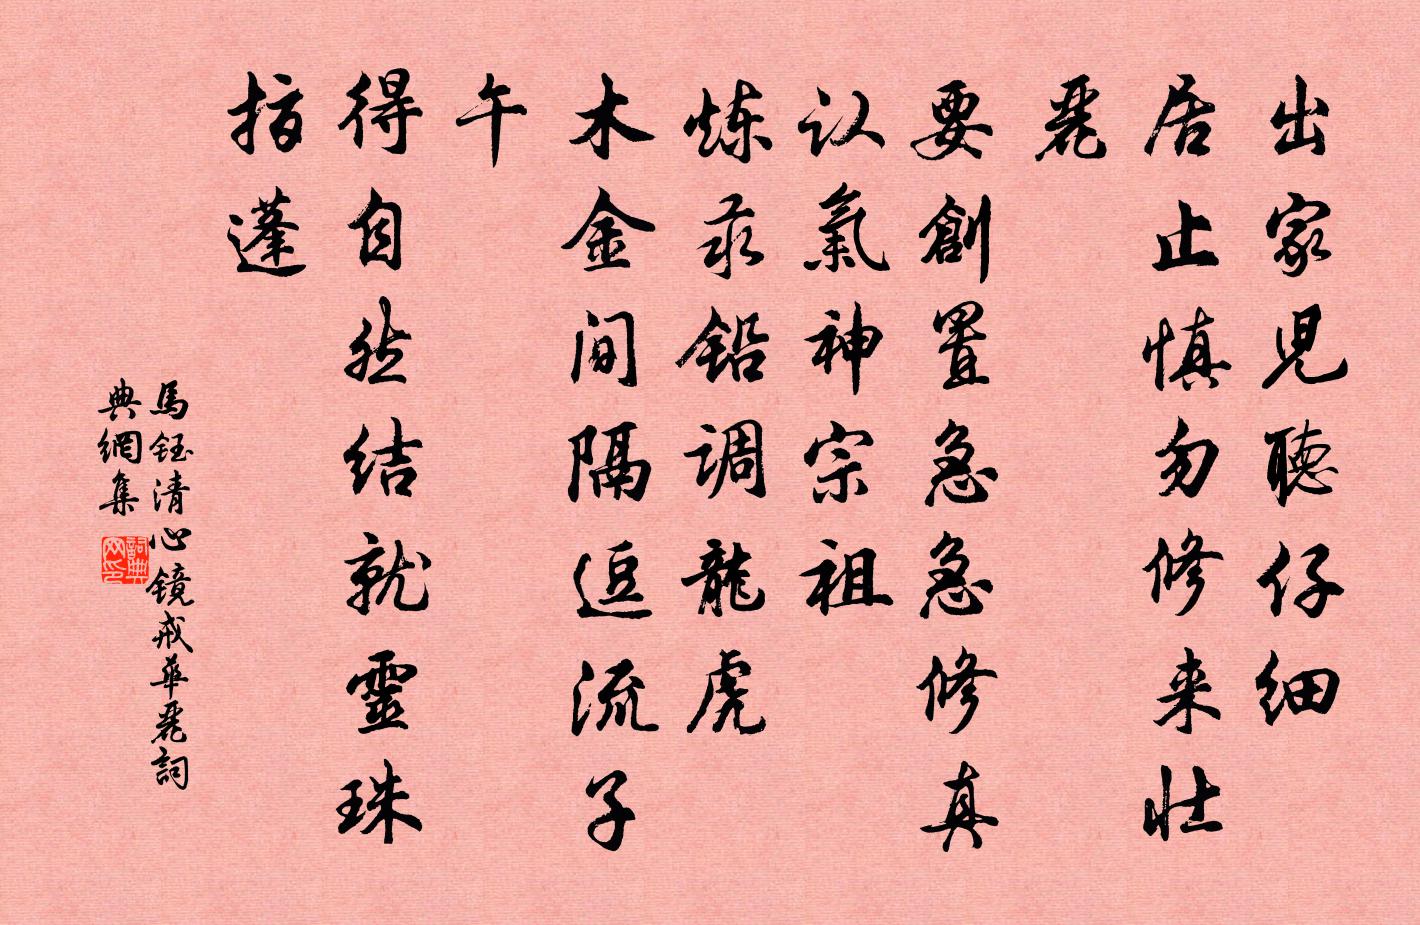 出家児聽仔細
居止慎勿修来壯
麗
要創置急急修真
认氣神宗祖
炼汞鉛调龍虎
木金间隔逗流子
午
得自然结就靈珠
指蓬
馬鈺清心镜戒華麗詞
典網集
詞典网